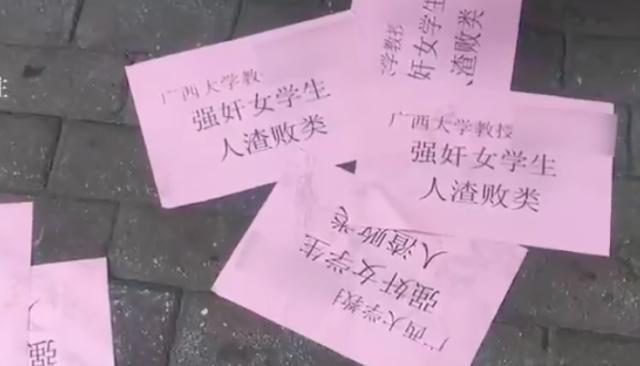 广西大学教
强奸女学生
人渣败类
学教授
奸女学生
人渣败类
广西大学教授
强奸女学生
人渣败类
广西大学教
强奸女学生
人渣败类
强